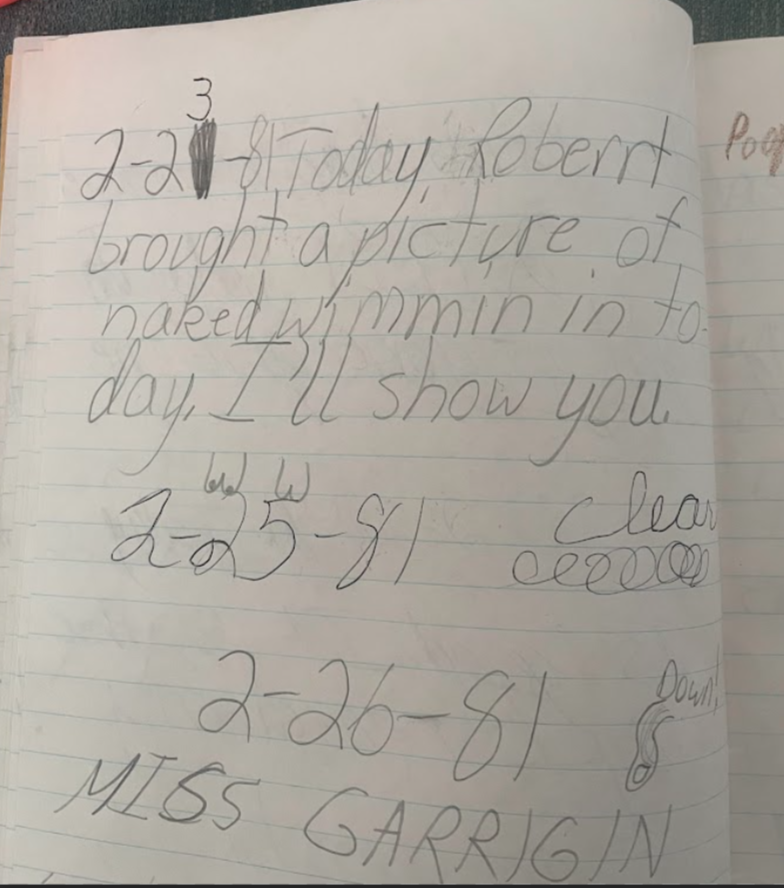 3
2-2 -81, Today, Roberrt
brought a picture of
naked wimmin in to-
day. I'll show you.
W W
2-25-81 Clear
2-26-81 Down!
MISS GARRIGIN